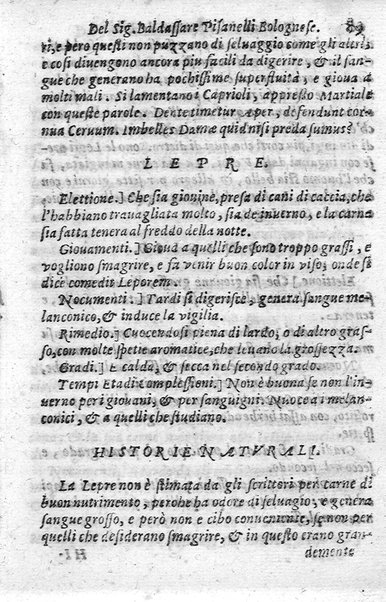 Del Sig. Baldassare Pisanelli Bolognese. 89
ri, e però questi non puzzano di seluaggio come gli altri,
e cosi diuengono ancora piu facili da digerire, & il san
gue che generano ha pochissime superfluità, e gioua a
molti mali. Si lamentano i Caprioli, appresso Martiale
con queste parole. Dente timetur Aper, defendunt cor
nua Ceruum. Imbelles Damæ quid nisi preda sumus?
LEPRE.
Elettione.] Che sia giouine, presa di cani di caccia, che
l'habbiano trauagliata molto, sia de inuerno, e la carne
sia fatta tenera al freddo della notte.
Giouamenti.] Gioua a quelli che sono troppo grassi, e
vogliono smagrire, e fa venir buon color in viso, onde si
dice comedit Leporem.
Nocumenti.] Tardi si digerisce, genera sangue me-
lanconico, & induce la vigilia.
Rimedio.] Cuocendosi piena di lardo, o di altro gras-
so, con molte spetie aromatiche, che leuano la grossezza.
Gradi.] E calda, & secca nel secondo grado.
Tempi Etadi Complessioni.] Non è buona se non l'in-
uerno per i giouani, & per sanguigni. Nuoce a i melan-
conici, & a quelli che studiano.
HISTORIE NATVRALI.
La Lepre non è stimata da gli scrittori per carne di
buon nutrimento, perche ha odore di seluagio, e genera
sangue grosso, e però non e cibo conueniente, se non per
quelli che desiderano smagrire, & in questo erano gran
demente